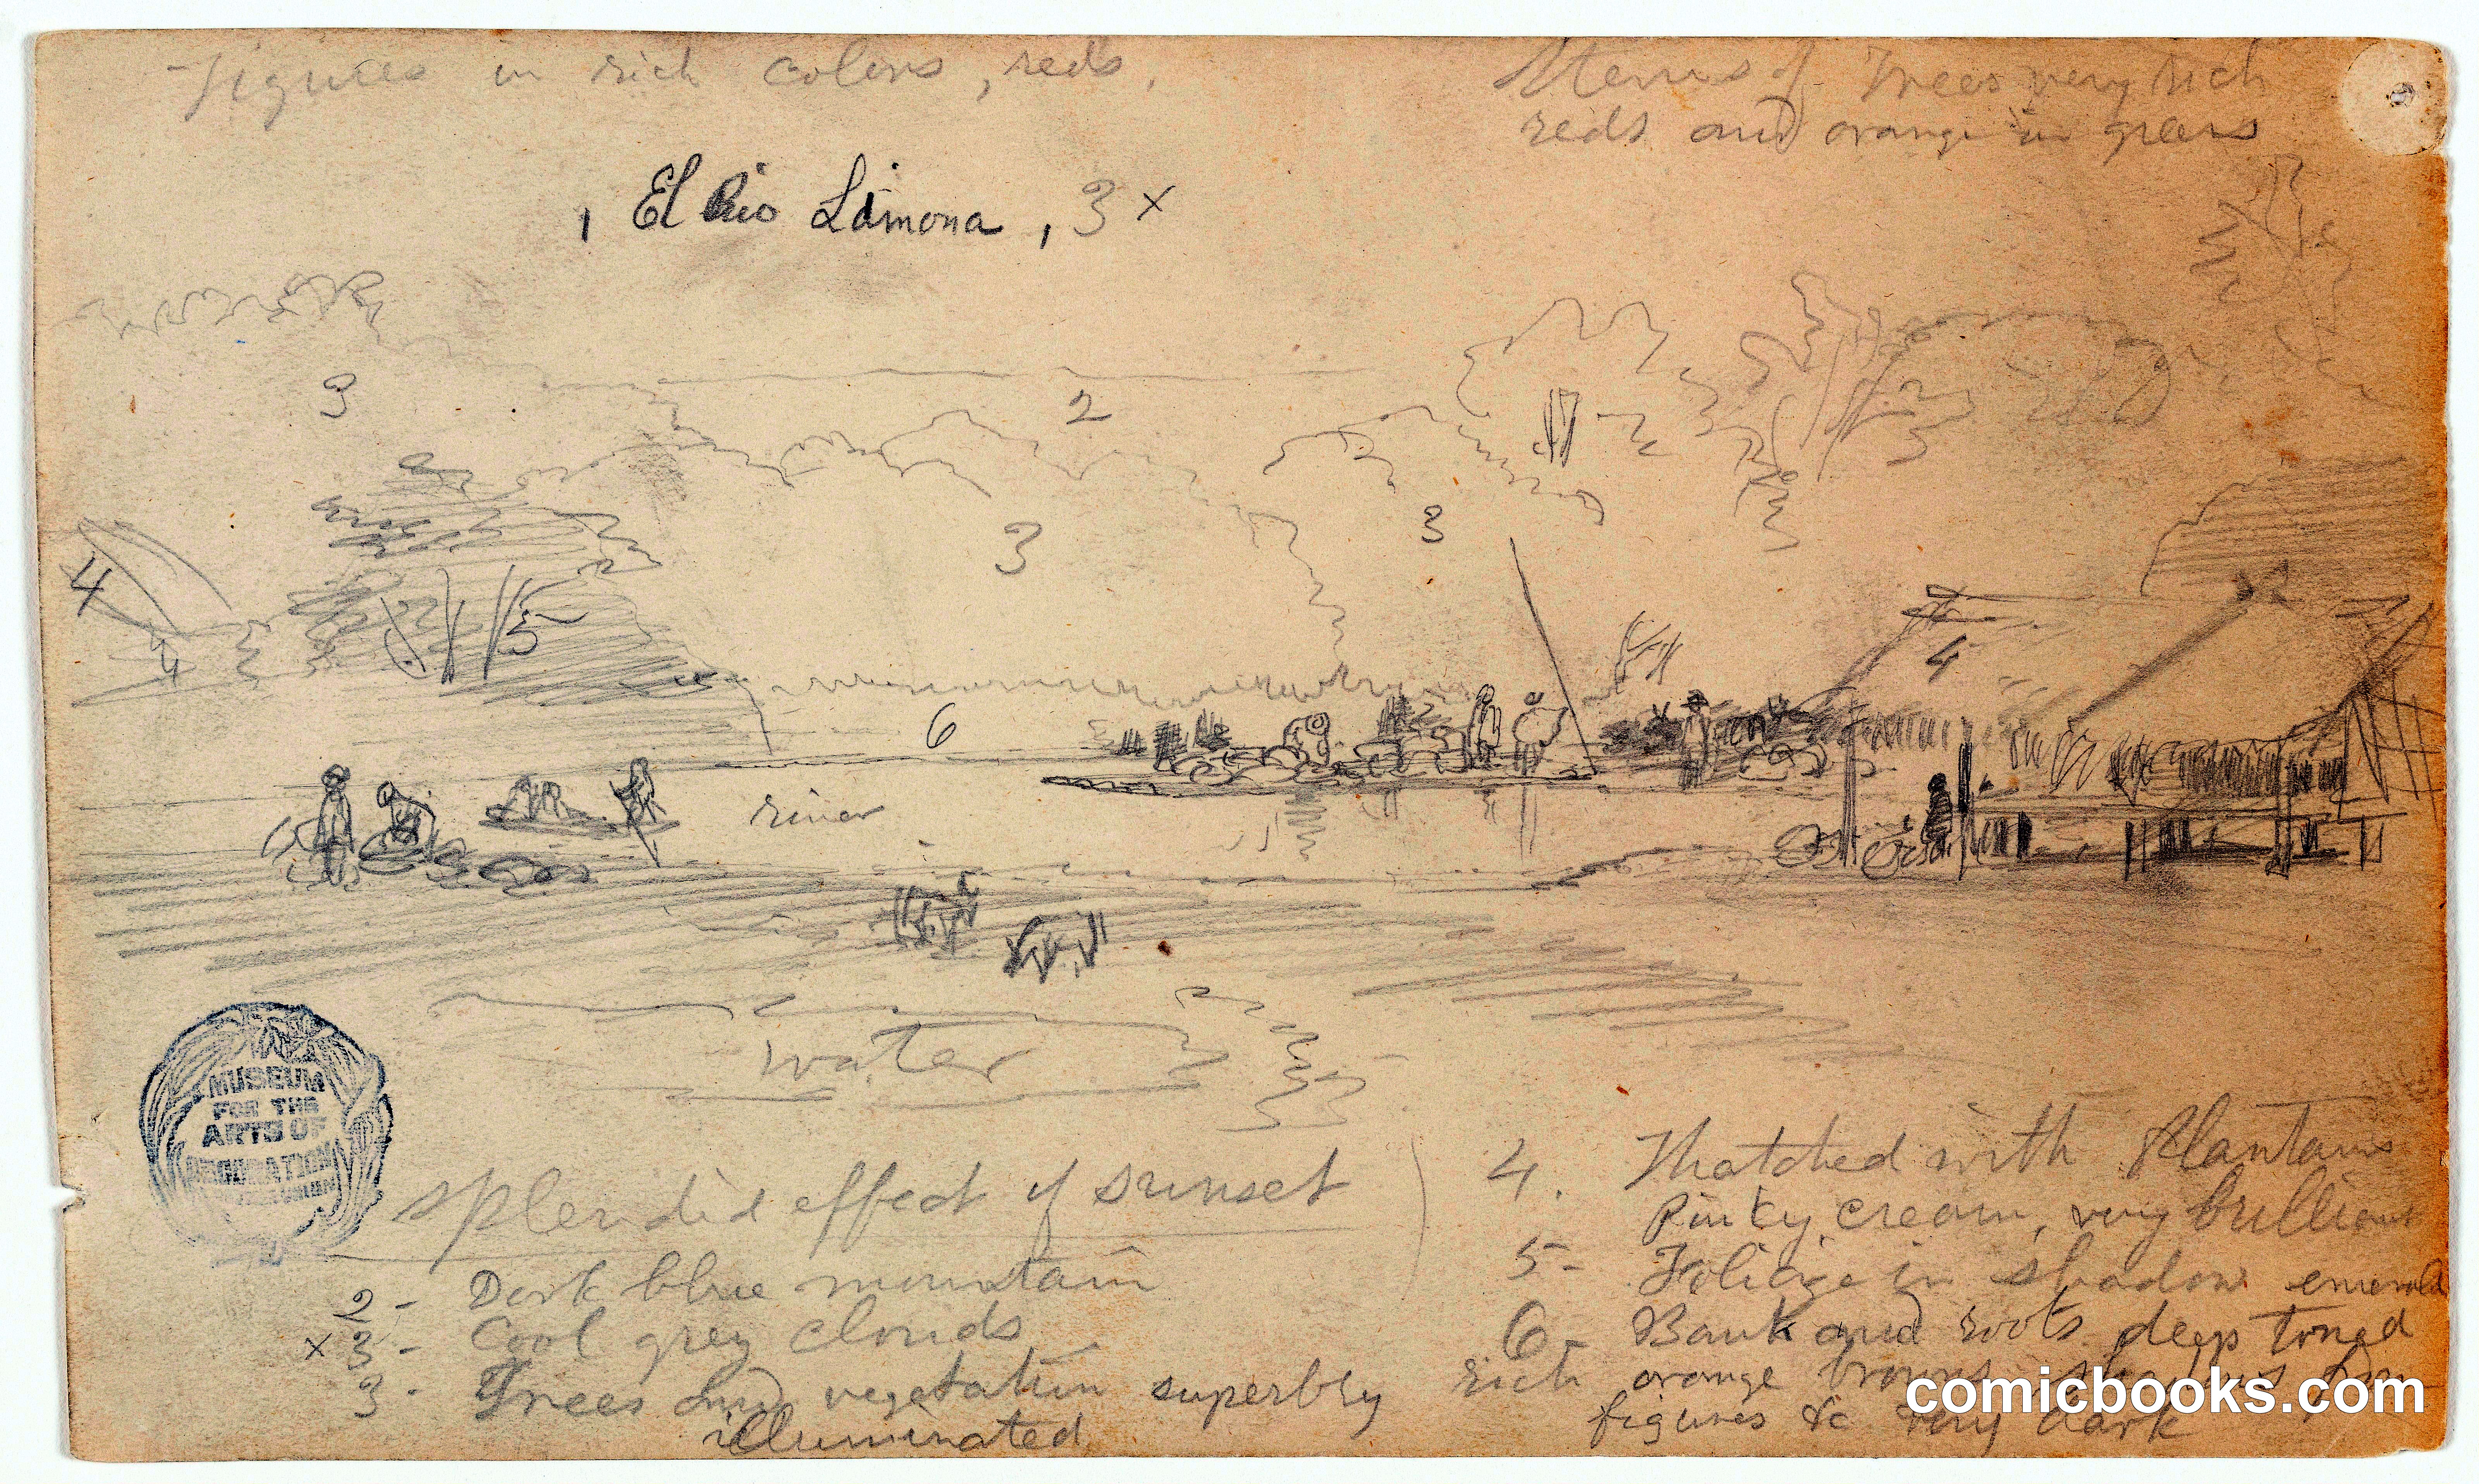 figures in rich colors, reds.
Stems of Trees very rich
reds and orange in greens
, El Rio Limona, 3 x
3
2
3
3
4
5
4
4
6
river
water
MUSEUM
FOR THE
ARTS OF
DECORATION
splendid effect of sunset
2 - Dark blue mountain
x 3 - Cool grey clouds
3 - Trees and vegetation superbly
illuminated
4. Thatched with Plantains
Pinky cream, very brilliant
5 - Foliage in shadow emerald
6 - Bank and roots deep toned
rich orange browns
figures &c very dark
comicbooks.com